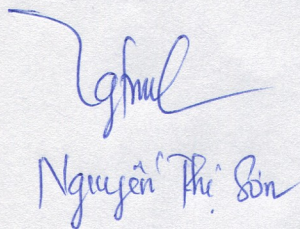 Nguyễn Thị Sơn